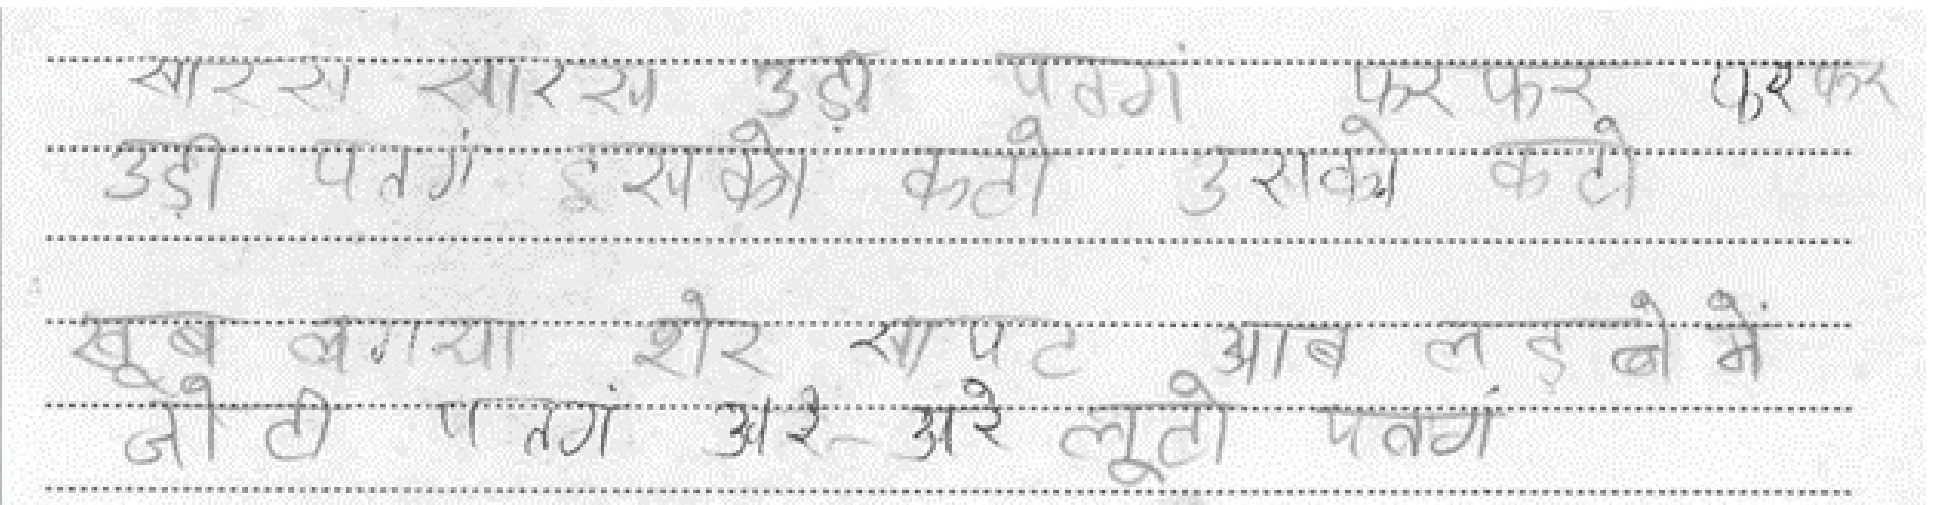 सारस सारस उड़ी पतगं फर फर फर फर
उड़ी पतगं इसको कटो उसको कटो
खूब लगया शेर सापट आब लड़ने में
जो टी पतगं अरे अरे लूटो पतगं